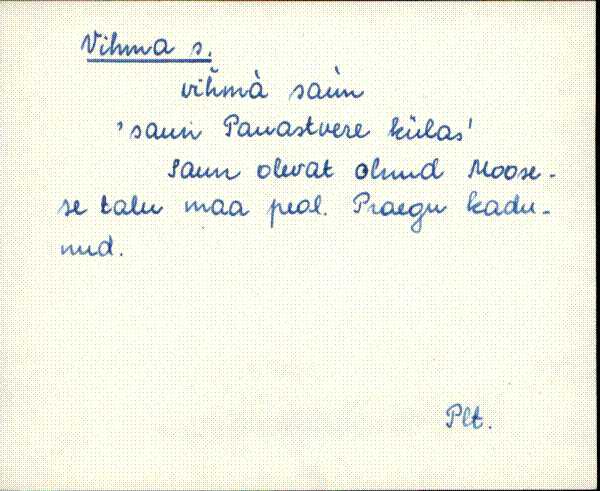 Vihma s.
vih̆mà saùn
'saun Pauastvere külas'
Saun olevat olnud Moose-
se talu maa peal. Praegu kadu-
nud.
Plt.